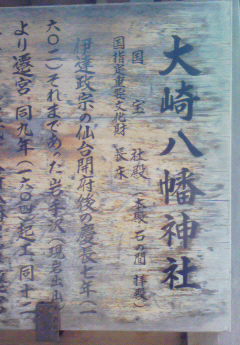 大崎八幡神社
国宝 社殿(本殿 石の間 拝殿)
国指定重要文化財 長床
伊達政宗の仙台開府後の慶長七年(一
六〇二)それまであった岩手沢(現岩出山
より遷宮、同九年(一六〇四)起工、同十二